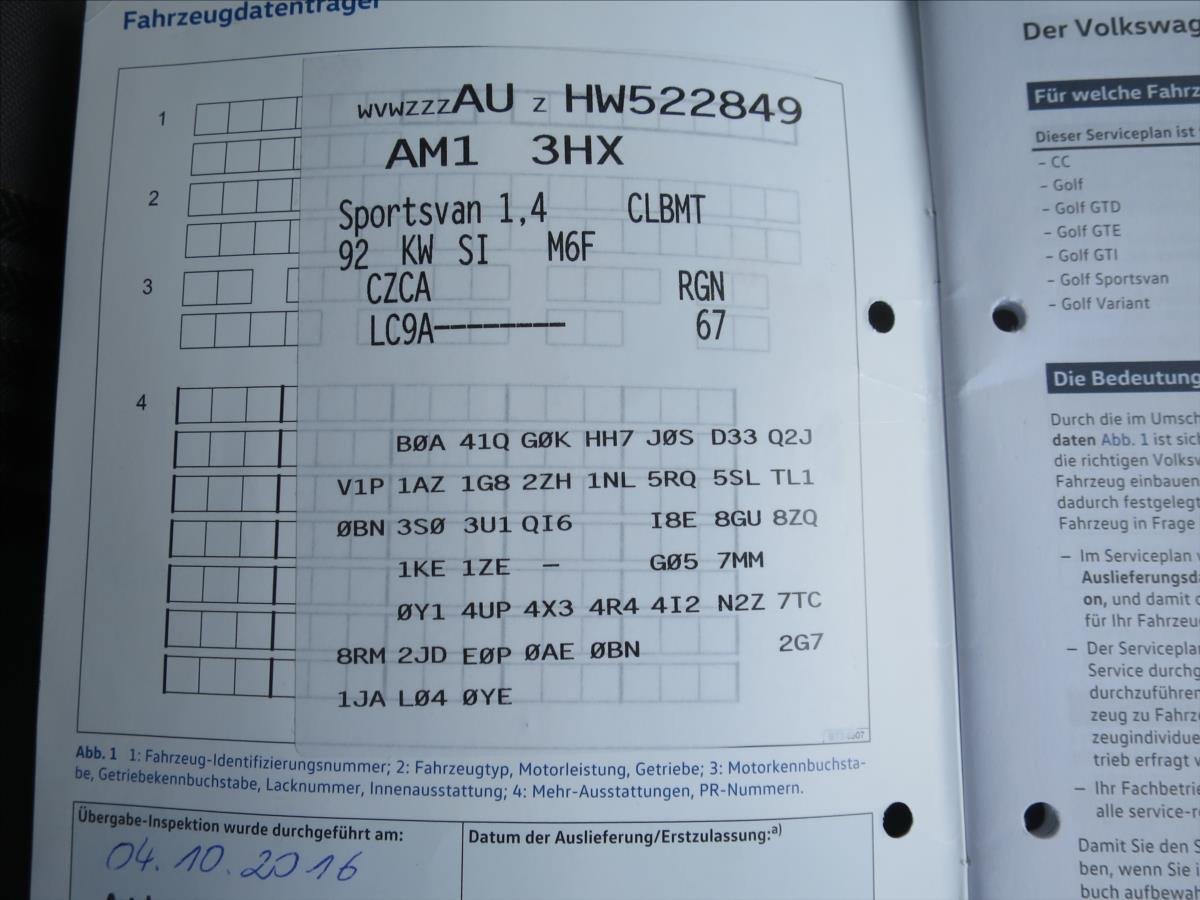 Fahrzeugdatenträger
1
WVWZZZAU Z HW522849
AM1 3HX
2
Sportsvan 1,4 CLBMT
92 KW SI M6F
3
CZCA RGN
LC9A-------- 67
4
BØA 41Q GØK HH7 JØS D33 Q2J
V1P 1AZ 1G8 2ZH 1NL 5RQ 5SL TL1
ØBN 3SØ 3U1 QI6 I8E 8GU 8ZQ
1KE 1ZE – GØ5 7MM
ØY1 4UP 4X3 4R4 4I2 N2Z 7TC
8RM 2JD EØP ØAE ØBN 2G7
1JA LØ4 ØYE
Abb. 1 1: Fahrzeug-Identifizierungsnummer; 2: Fahrzeugtyp, Motorleistung, Getriebe; 3: Motorkennbuchsta-
be, Getriebekennbuchstabe, Lacknummer, Innenausstattung; 4: Mehr-Ausstattungen, PR-Nummern.
Übergabe-Inspektion wurde durchgeführt am:
04.10.2016
Datum der Auslieferung/Erstzulassung:a)
Der Volkswag
Für welche Fahrz
Dieser Serviceplan ist
– CC
– Golf
– Golf GTD
– Golf GTE
– Golf GTI
– Golf Sportsvan
– Golf Variant
Die Bedeutung
Durch die im Umsch
daten Abb. 1 ist sich
die richtigen Volksw
Fahrzeug einbauen
dadurch festgelegt
Fahrzeug in Frage
– Im Serviceplan
Auslieferungsda
on, und damit
für Ihr Fahrzeu
– Der Serviceplan
Service durchg
durchzuführen
zeug zu Fahrze
zeugindividue
trieb erfragt
– Ihr Fachbetrie
alle service-re
Damit Sie den S
ben, wenn Sie i
buch aufbewah